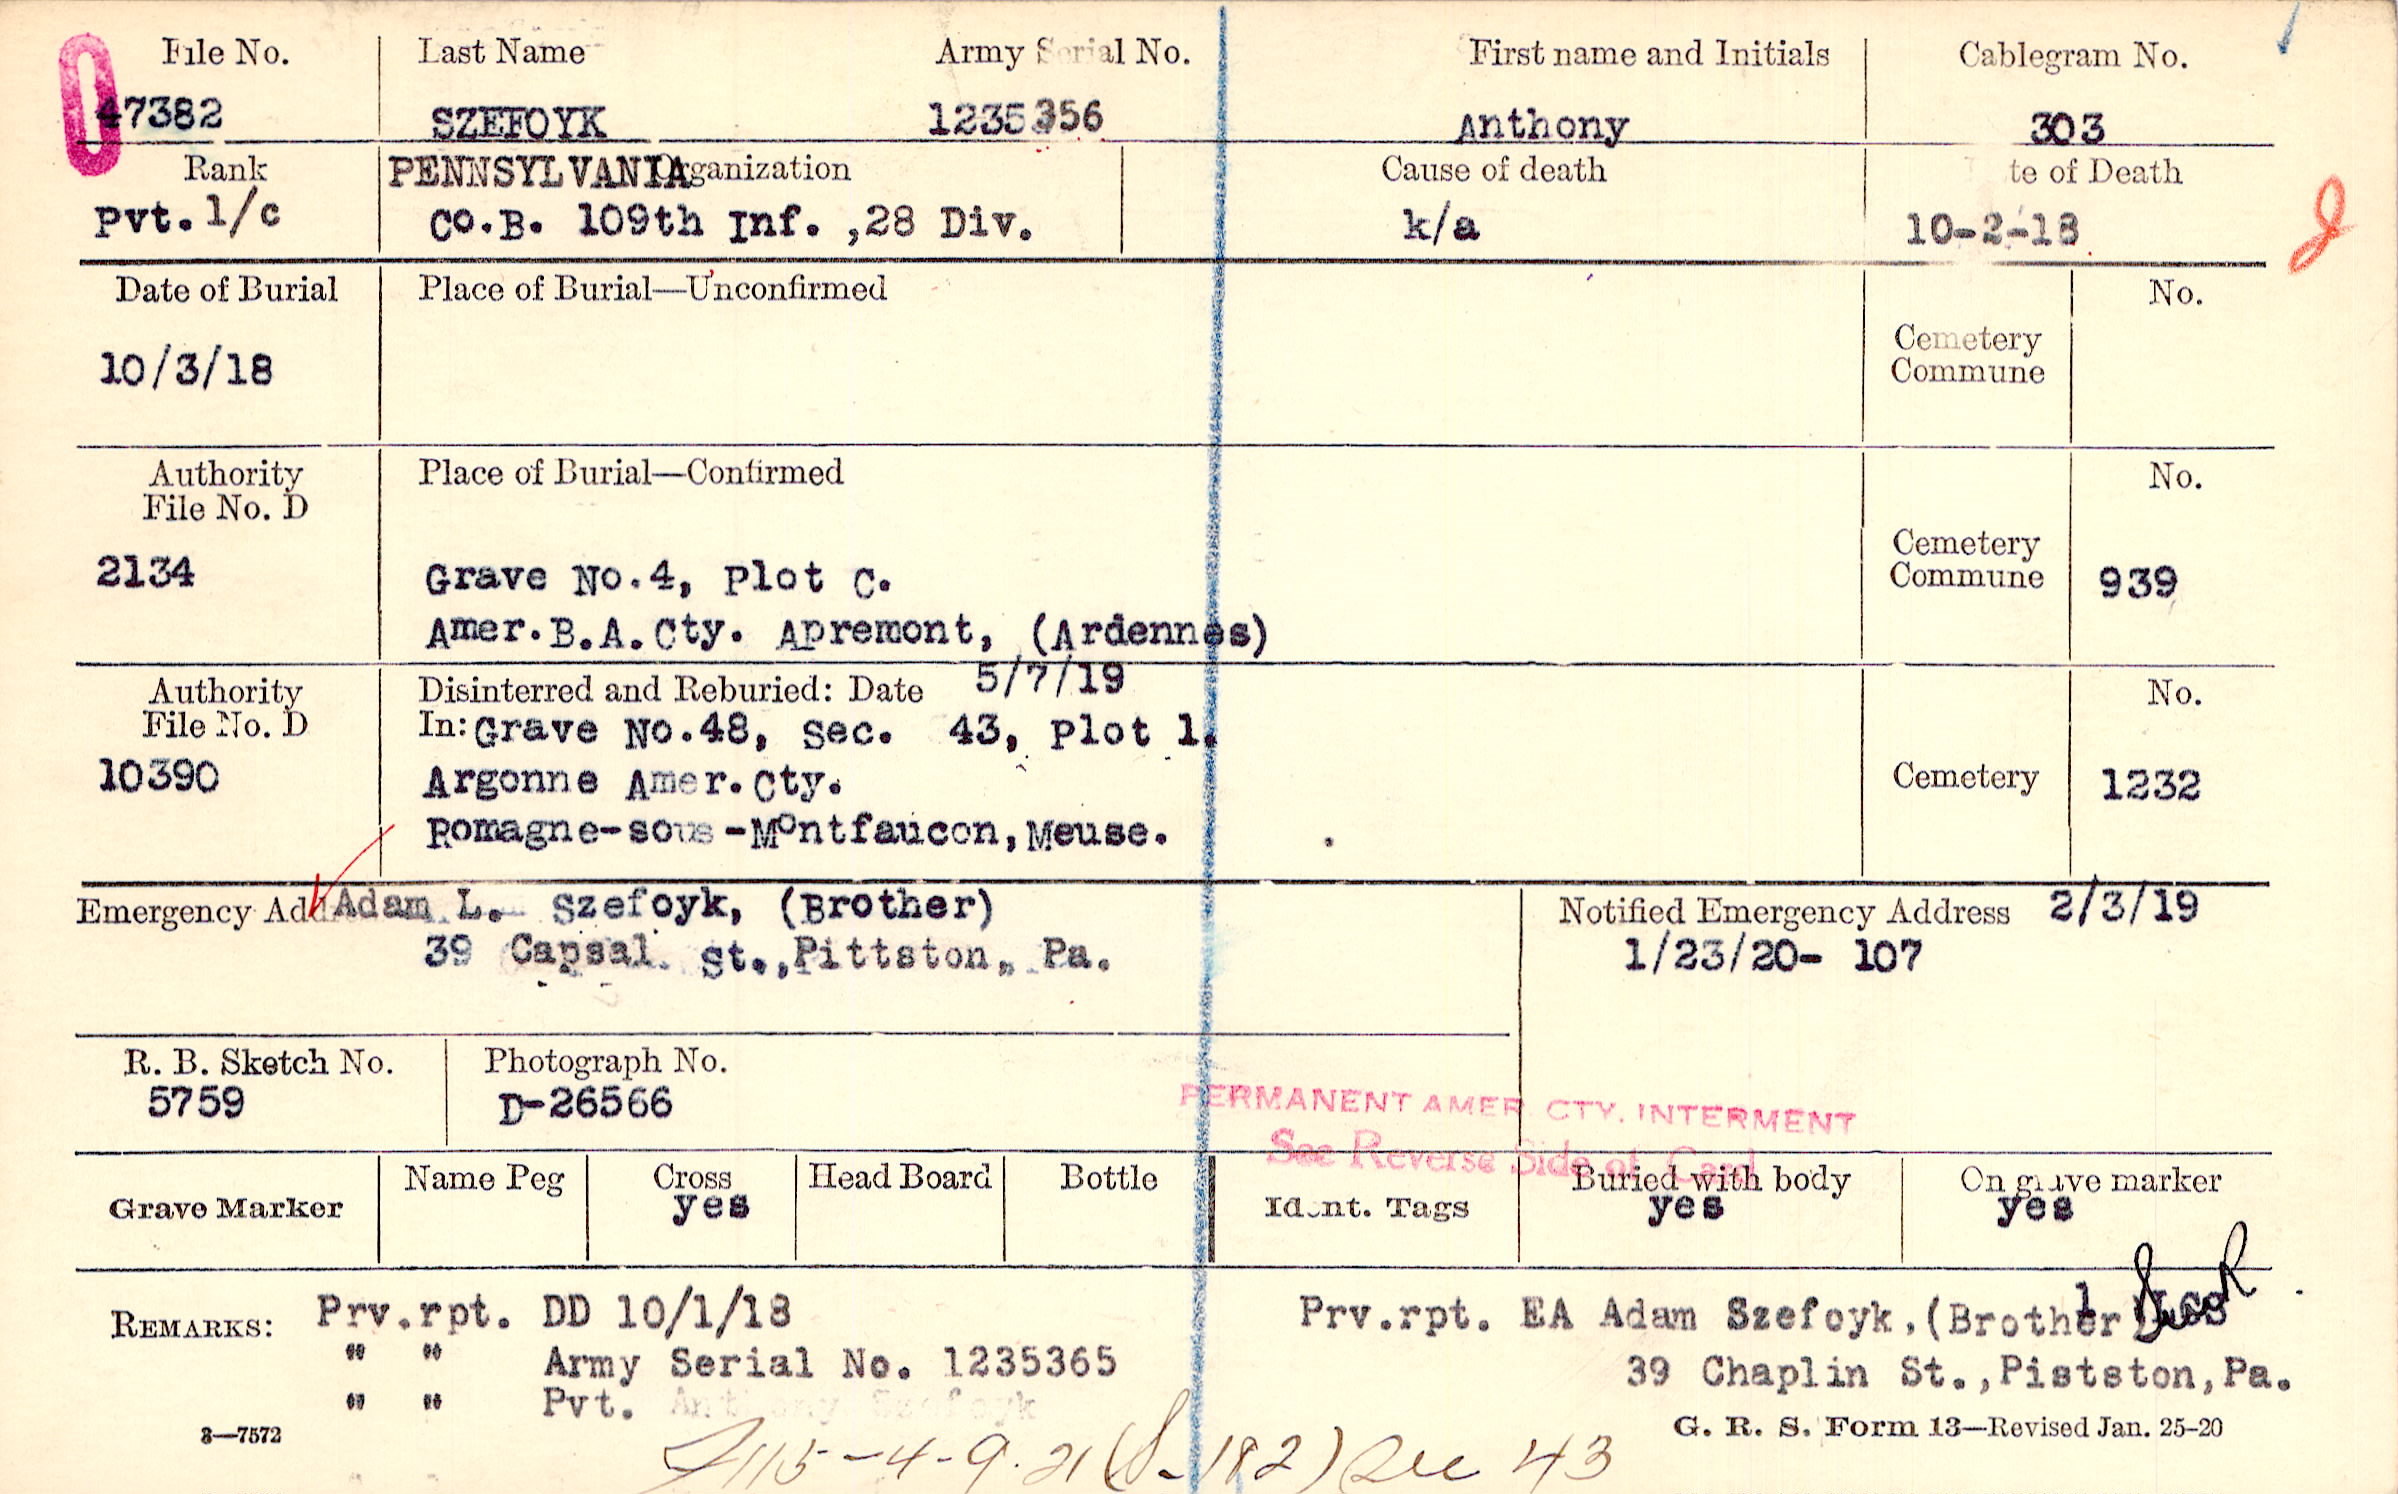 File No. Last Name Army Serial No. First name and Initials Cablegram No.
47382 SZEFOYK 1235356 Anthony 303
Rank PENNSYLVANIA Organization Cause of death te of Death
Pvt. 1/c Co.B. 109th Inf. ,28 Div. k/a 10-2-18
Date of Burial Place of Burial—Unconfirmed No.
10/3/18 Cemetery
Commune
Authority Place of Burial—Confirmed No.
File No. D
2134 Grave No.4, Plot C. Cemetery
Commune 939
Amer.B.A.Cty. Apremont, (Ardennes)
Authority Disinterred and Reburied: Date 5/7/19 No.
File No. D In: Grave No.48, Sec. 43, Plot 1.
10390 Argonne Amer.Cty. Cemetery 1232
Romagne-sous-Montfaucon,Meuse.
Emergency Add Adam L. Szefoyk, (Brother) Notified Emergency Address 2/3/19
39 Capsal St.,Pittston, Pa. 1/23/20- 107
R. B. Sketch No. Photograph No.
5759 D-26566
PERMANENT AMER CTY. INTERMENT
See Reverse Side of Card
Grave Marker Name Peg Cross Head Board Bottle Ident. Tags Buried with body On grave marker
yes yes yes
REMARKS: Prv.rpt. DD 10/1/18 Prv.rpt. EA Adam Szefoyk,(Brother)
" " Army Serial No. 1235365 39 Chaplin St.,Pistston,Pa.
" " Pvt. Anthony Szefoyk
3—7572 G. R. S. Form 13—Revised Jan. 25-20
115-4-9.21 (S-182) Sec 43